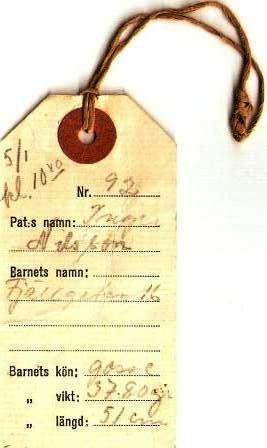 5/1
kl. 10
Nr. 92
Pat:s namn: Inger
Nilsson
Barnets namn:
Fjällgatan 16
Barnets kön: gosse
„ vikt: 3780 gr
„ längd: 51 cm